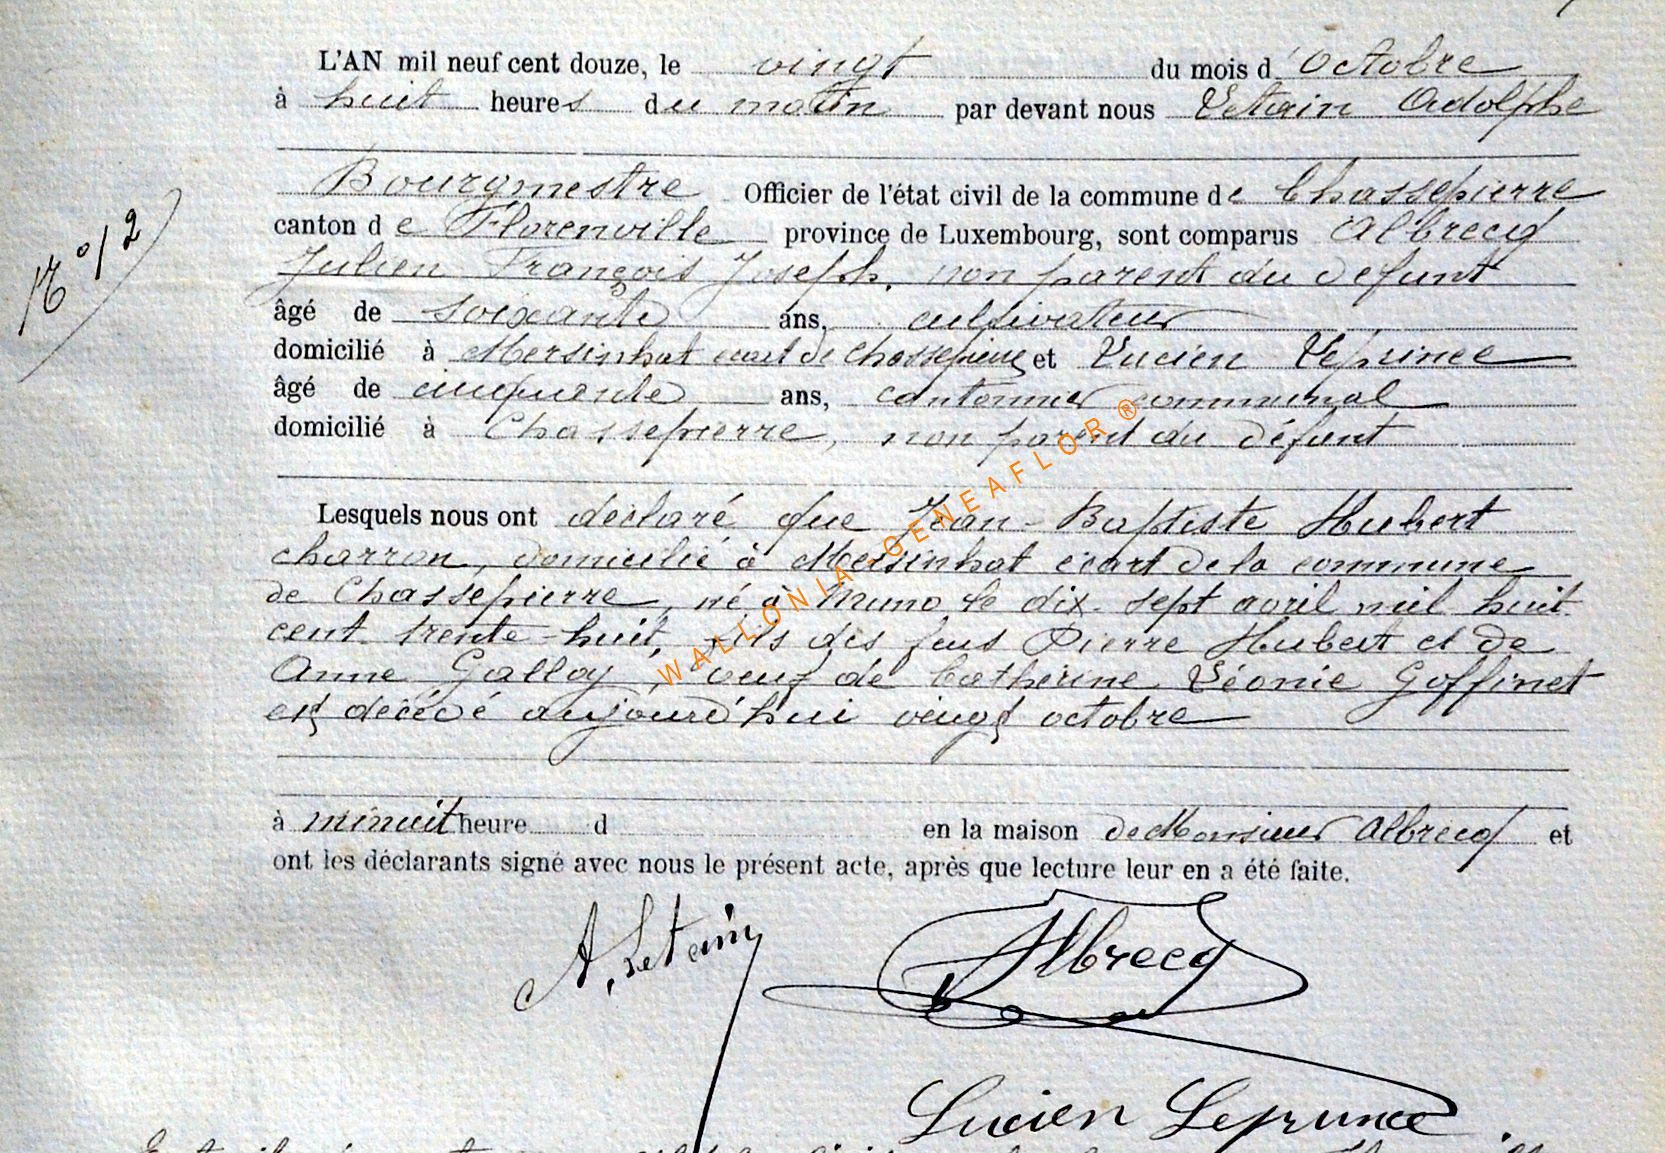 L'AN mil neuf cent douze, le vingt du mois d'Octobre
à huit heures du matin par devant nous Letain Adolphe
Bourgmestre Officier de l'état civil de la commune de Chassepierre
canton de Florenville province de Luxembourg, sont comparus Albrecq
Julien François Joseph, non parent du défunt
N° 12
âgé de soixante ans, cultivateur
domicilié à Mersinhat écart de Chassepierre et Lucien Leprince
âgé de cinquante ans, cantonnier communal
domicilié à Chassepierre, non parent du défunt
Lesquels nous ont déclaré que Jean-Baptiste Hubert
charron, domicilié à Mersinhat écart de la commune
de Chassepierre, né à Muno le dix-sept avril mil huit
cent trente-huit, fils des feus Pierre Hubert et de
Anne Galloy, veuf de Catherine Léonie Goffinet
est décédé aujourd'hui vingt octobre
à minuit heure d en la maison de Monsieur Albrecq et
ont les déclarants signé avec nous le présent acte, après que lecture leur en a été faite.
A. Letain Albrecq
Lucien Leprince
WALLONIA-GENEAFLOR®